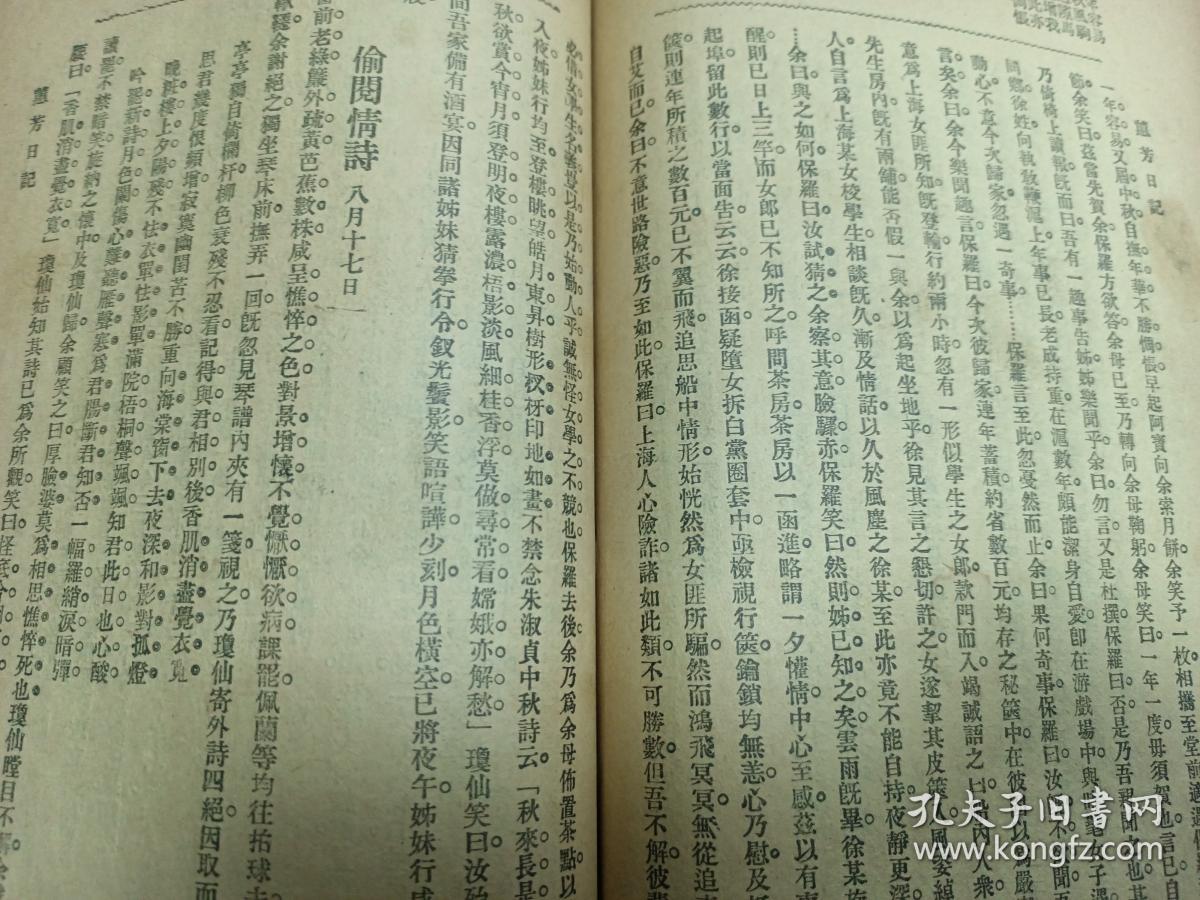 慧芳日記
一年容易又屆中秋自撫年華不勝惆悵早起阿寶向余索月餅余笑予一枚相攜至堂前適遇
節余笑曰茲當先賀余保羅方欲答余母已至乃轉向余母鞠躬余母笑曰一年一度毋須賀也言已自
乃倚椅上讀報旣而曰吾有一趣事告姊姊樂聞乎余曰勿言又是杜撰保羅曰否是乃吾親聞也其
同鄉徐姓向執教鞭滬上年事已長老成持重在滬數年頗能潔身自愛卽在游戲場中與
動心不意今次歸家忽遇一奇事……保羅言至此忽戞然而止余曰果何奇事保羅曰汝
言矣余曰余今樂聞趣言保羅曰今次彼歸家連年蓄積約省數百元均存之秘篋中在彼
意爲上海女匪所知旣登輪行約兩小時忽有一形似學生之女郎款門而入竭誠語之
先生房內旣有兩鋪能否假一與余以爲起坐地乎徐見其言之懇切許之女遂挈其皮篋
人自言爲上海某女校學生相談旣久漸及情話以久於風塵之徐某至此亦竟不能自持夜靜更深
…余曰與之如何保羅曰汝試猜之余察其意臉驟赤保羅笑曰然則姊已知之矣雲雨旣畢徐某
醒則已日上三竿而女郎已不知所之呼問茶房茶房以一函進略謂一夕懽情中心至感茲以有
起埠留此數行以當面告云云徐接函疑墮女拆白黨圈套中亟檢視行篋鑰鎖均無恙心乃慰及
篋則連年所積之數百元已不翼而飛追思船中情形始恍然爲女匪所騙然而鴻飛冥冥無從追
自艾而已余曰不意世路險惡乃至如此保羅曰上海人心險詐諸如此類不可勝數但吾不解彼
以是乃始動人乎誠無怪女學之不競也保羅去後余乃爲余母佈置茶點以
入夜姊妹行均至登樓眺望皓月東昇樹形杈枒印地如畫不禁念朱淑貞中秋詩云「秋來長是
秋欲賞今宵月須登明夜樓露濃梧影淡風細桂香浮莫做尋常看嫦娥亦解愁」瓊仙笑曰汝殆
間吾家備有酒宴因同諸姊妹猜拳行令釵光鬢影笑語喧譁少刻月色橫空已將夜午姊妹行咸
偷閱情詩 八月十七日
窗前老綠簾外疏黃芭蕉數株咸呈憔悴之色對景增悽不覺懨懨欲病課罷佩蘭等均往拍球去
余謝絕之獨坐琴床前撫弄一回旣忽見琴譜內夾有一箋視之乃瓊仙寄外詩四絕因取而
亭亭獨自倚欄杆柳色衰殘不忍看記得與君相別後香肌消盡覺衣寬
思君幾度恨頻增寂寞幽閨苦不勝重向海棠窗下去夜深和影對孤燈
晚粧樓上夕陽殘不怯衣單怯影單滿院梧桐聲颯颯知君此日也心酸
吟罷新詩月色闌傷心難聽雁聲寒爲君腸斷君知否一幅羅綃淚暗彈
讀罷不禁暗笑旋納之懷中及瓊仙歸余顧笑之曰厚臉婆莫爲相思憔悴死也瓊仙瞠目不
曰「香肌消盡覺衣寬」瓊仙始知其詩已爲余所觀笑曰
慧芳日記
孔夫子旧书网
kongfz.com